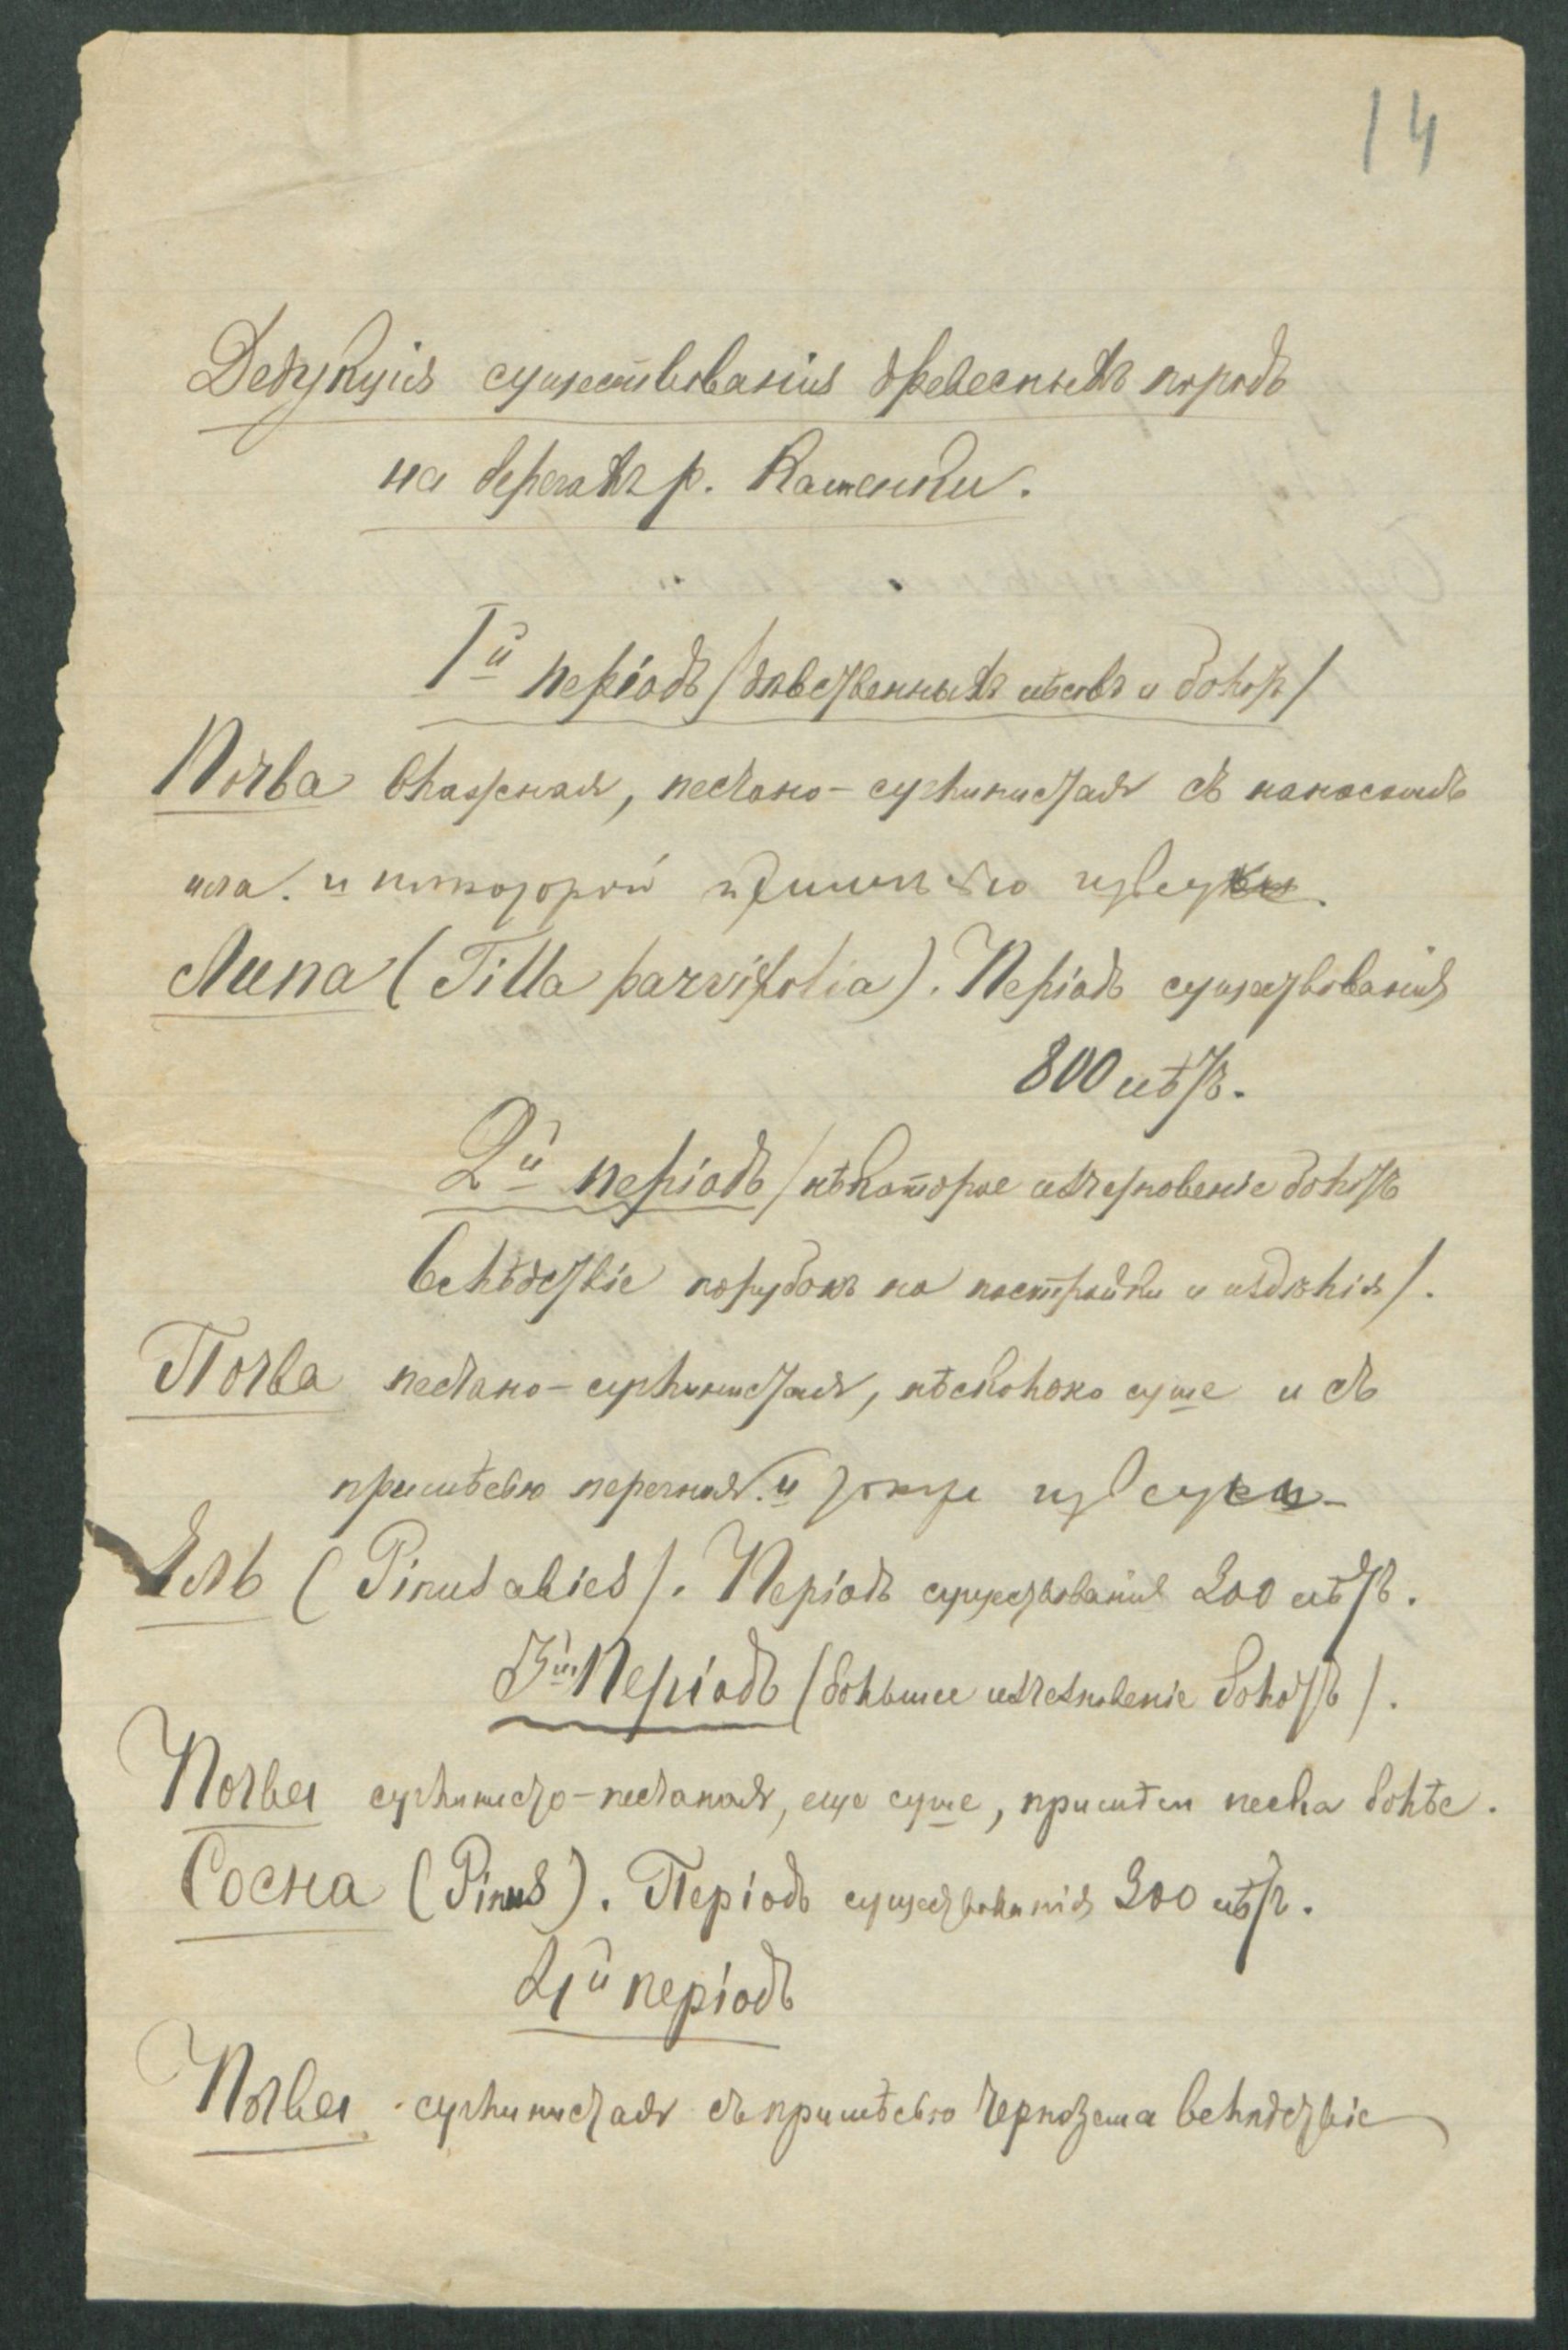 14
Дедукція существованія древесныхъ породъ
на берегахъ р. Каменки.
1й періодъ (дѣвственныхъ лѣсовъ и болотъ)
Почва влажная, песчано-суглинистая съ наносомъ
ила. и некоторой примѣсью извески.
Липа (Tilla parvifolia). Періодъ существованія
800 лѣтъ.
2й періодъ (нѣкоторое исчезновеніе болотъ
вслѣдствіе порубокъ на постройки и издѣлія).
Почва песчано-суглинистая, нѣсколько суше и съ
примѣсью перегноя. и извески
Ель (Pinus abies). Періодъ существованія 200 лѣтъ.
3й Періодъ (большее исчезновеніе болотъ).
Почва суглинисто-песчаная, еще суше, примѣси песка болѣе.
Сосна (Pinus). Періодъ существованія 200 лѣтъ.
4й періодъ
Почва суглинистая съ примѣсью чернозема вслѣдствіе